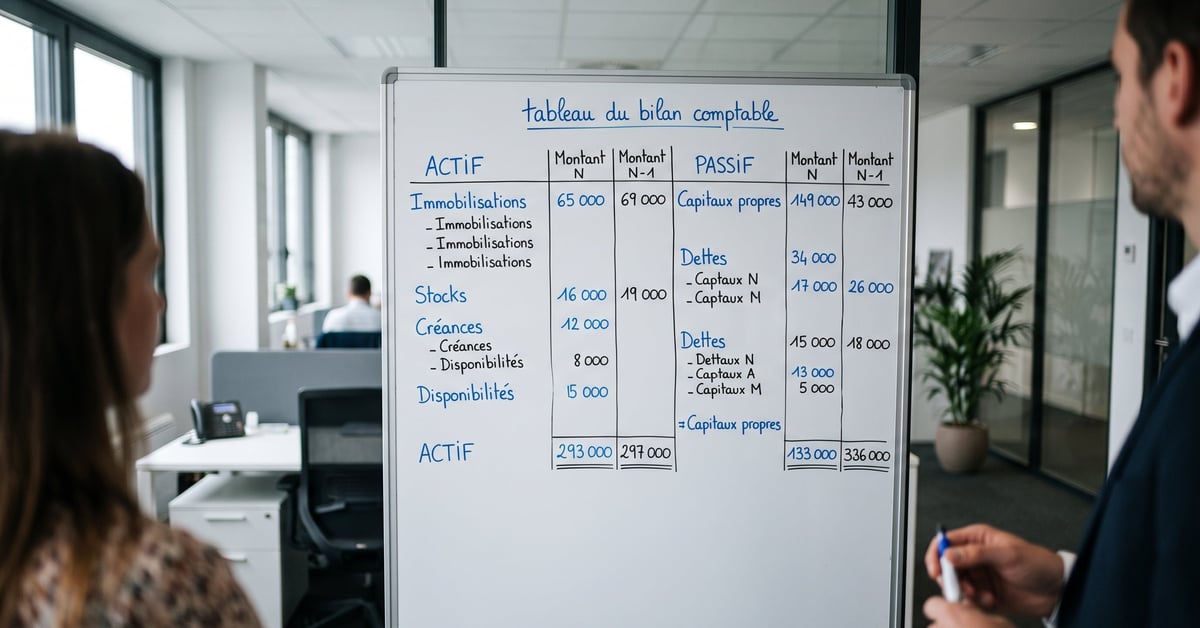 tableau du bilan comptable
ACTIF Montant N Montant N-1 PASSIF Montant N Montant N-1
Immobilisations 65 000 69 000 Capitaux propres 149 000 43 000
- Immobilisations
- Immobilisations
- Immobilisations
Dettes 34 000
- Captaux N 17 000 26 000
Stocks 16 000 19 000 - Captaux M
Créances 12 000
- Créances Dettes 15 000 18 000
- Disponibilités 8 000 - Dettaux N
- Captaux A 13 000
Disponibilités 15 000 - Capitaux M 5 000
= Capitaux propres
ACTIF 293 000 297 000 133 000 336 000